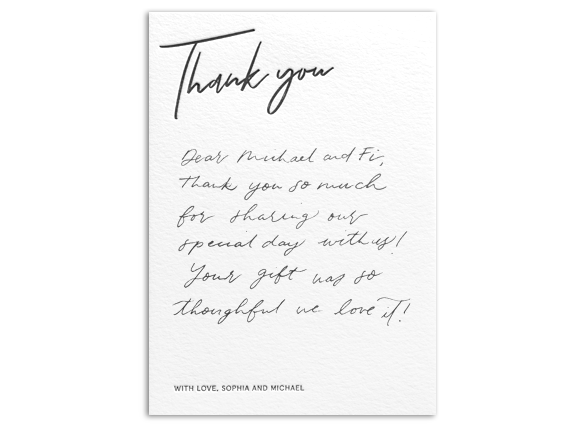 Thank you
Dear Michael and Fi,
thank you so much
for sharing our
special day with us!
Your gift was so
thoughful we love it!
WITH LOVE, SOPHIA AND MICHAEL